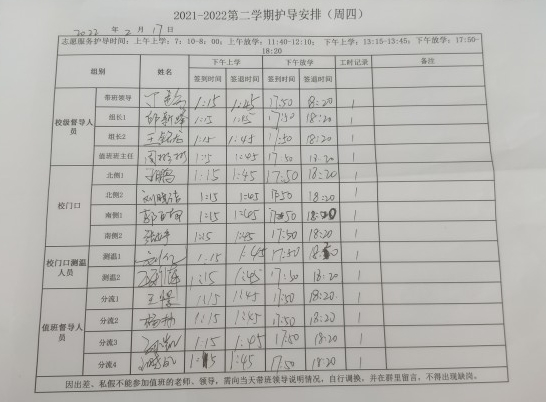 2021-2022第二学期护导安排（周四）
2022年2月17日
志愿服务护导时间：上午上学：7：10-8：00；上午放学：11:40-12:10； 下午上学：13:15-13:45；下午放学：17:50-
18:20
组别 姓名 下午上学 下午放学 工时记录 备注
签到时间 签退时间 签到时间 签退时间
校级督导人员 带班领导 1:15 1:45 17:50 18:20 1
组长1 1:15 1:45 17:50 18:20 1
组长2 1:15 1:45 17:50 18:20 1
值班班主任 1:15 1:45 17:50 18:20 1
校门口 北侧1 1:15 1:45 17:50 18:20 1
北侧2 1:15 1:45 17:50 18:20 1
南侧1 1:15 1:45 17:50 18:20 1
南侧2 1:15 1:45 17:50 18:20 1
校门口测温人员 测温1 1:15 1:45 17:50 18:20 1
测温2 1:15 1:45 17:50 18:20 1
值班督导人员 分流1 1:15 1:45 17:50 18:20 1
分流2 1:15 1:45 17:50 18:20 1
分流3 1:15 1:45 17:50 18:20 1
分流4 1:15 1:45 17:50 18:20 1
因出差、私假不能参加值班的老师、领导，需向当天带班领导说明情况，自行调换，并在群里留言，不得出现缺岗。